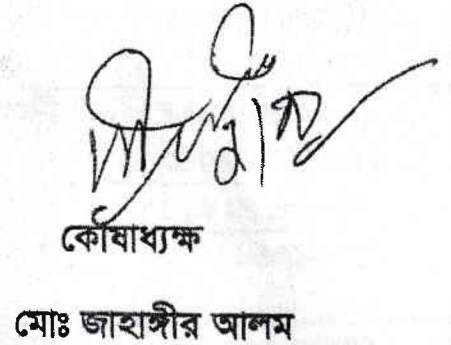 কোষাধ্যক্ষ
মোঃ জাহাঙ্গীর আলম